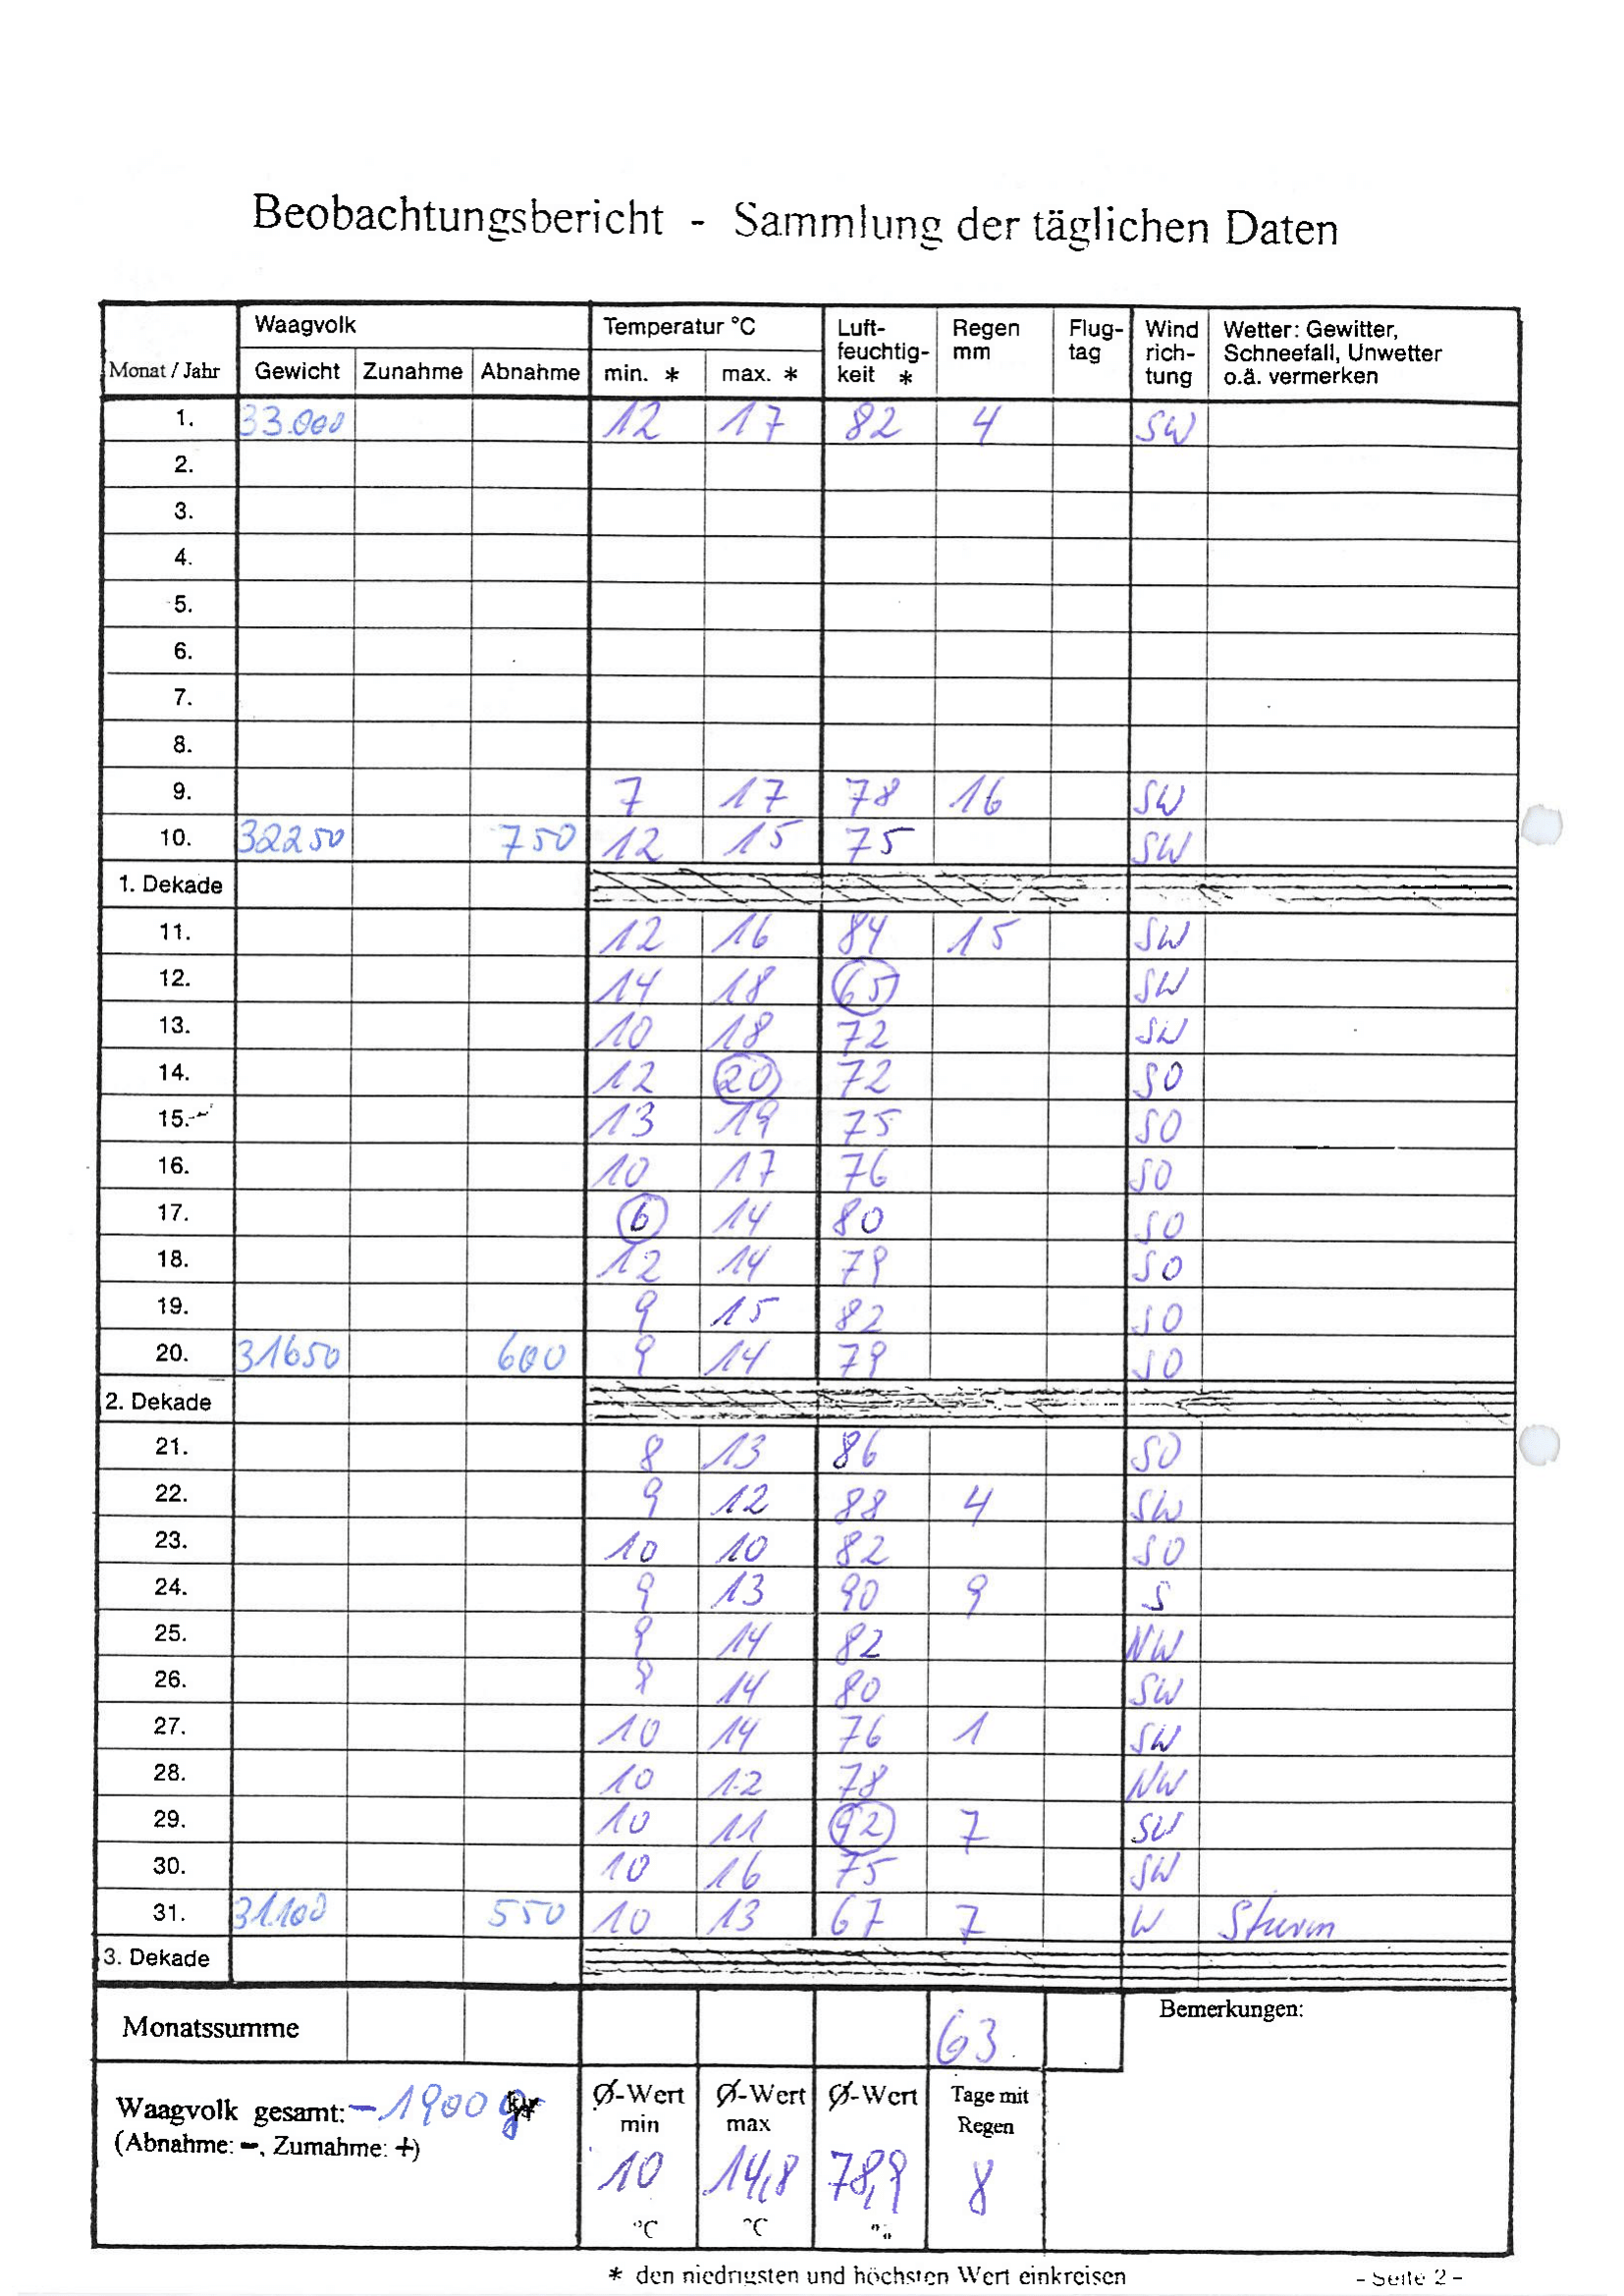 Beobachtungsbericht - Sammlung der täglichen Daten
Monat / Jahr Waagvolk Temperatur °C Luft-feuchtig-keit * Regen mm Flug-tag Wind rich-tung Wetter: Gewitter, Schneefall, Unwetter o.ä. vermerken
Gewicht Zunahme Abnahme min. * max. *
1. 33.000 12 17 82 4 SW
2.
3.
4.
5.
6.
7.
8.
9. 7 17 78 16 SW
10. 32250 750 12 15 75 SW
1. Dekade
11. 12 16 84 15 SW
12. 14 18 65 SW
13. 10 18 72 SW
14. 12 20 72 SO
15. 13 19 75 SO
16. 10 17 76 SO
17. 6 14 80 SO
18. 12 14 79 SO
19. 9 15 82 SO
20. 31650 600 9 14 79 SO
2. Dekade
21. 8 13 86 SO
22. 9 12 88 4 SW
23. 10 10 82 SO
24. 9 13 90 9 S
25. 14 82 NW
26. 14 80 SW
27. 10 14 76 1 SW
28. 10 12 78 NW
29. 10 11 92 7 SW
30. 10 16 75 SW
31. 31.100 550 10 13 67 7 W Sturm
3. Dekade
Monatssumme 63 Bemerkungen:
Waagvolk gesamt: -1900 g
(Abnahme: -, Zumahme: +)
Ø-Wert min Ø-Wert max Ø-Wert Tage mit Regen
10 14,8 78,9 8
°C °C
* den niedrigsten und höchsten Wert einkreisen
- Seite 2 -